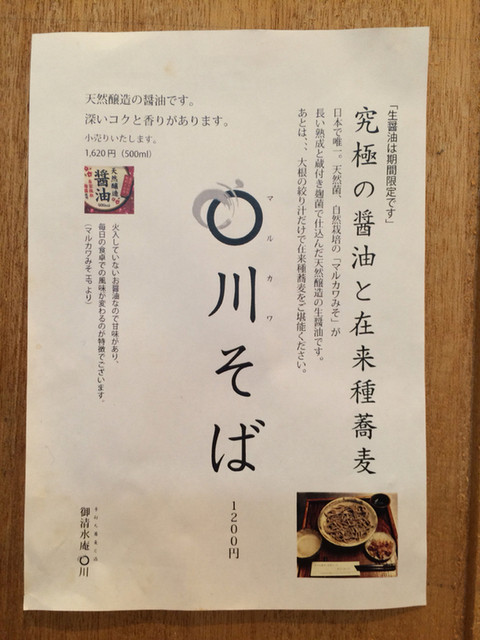 「生醤油は期間限定です」
究極の醤油と在来種蕎麦
日本で唯一。天然菌、自然栽培の「マルカワみそ」が
長い熟成と蔵付き麹菌で仕込んだ天然醸造の生醤油です。
あとは、、、大根の絞り汁だけで在来種蕎麦をご堪能ください。
マルカワ
〇川そば
1200円
天然醸造の醤油です。
深いコクと香りがあります。
小売りいたします。
1,620円（500ml）
天然醸造
醤油
火入していないお醤油なので甘味があり、
毎日の食卓での風味が変わるのが特徴でございます。
（マルカワみそHPより）
御清水庵〇川